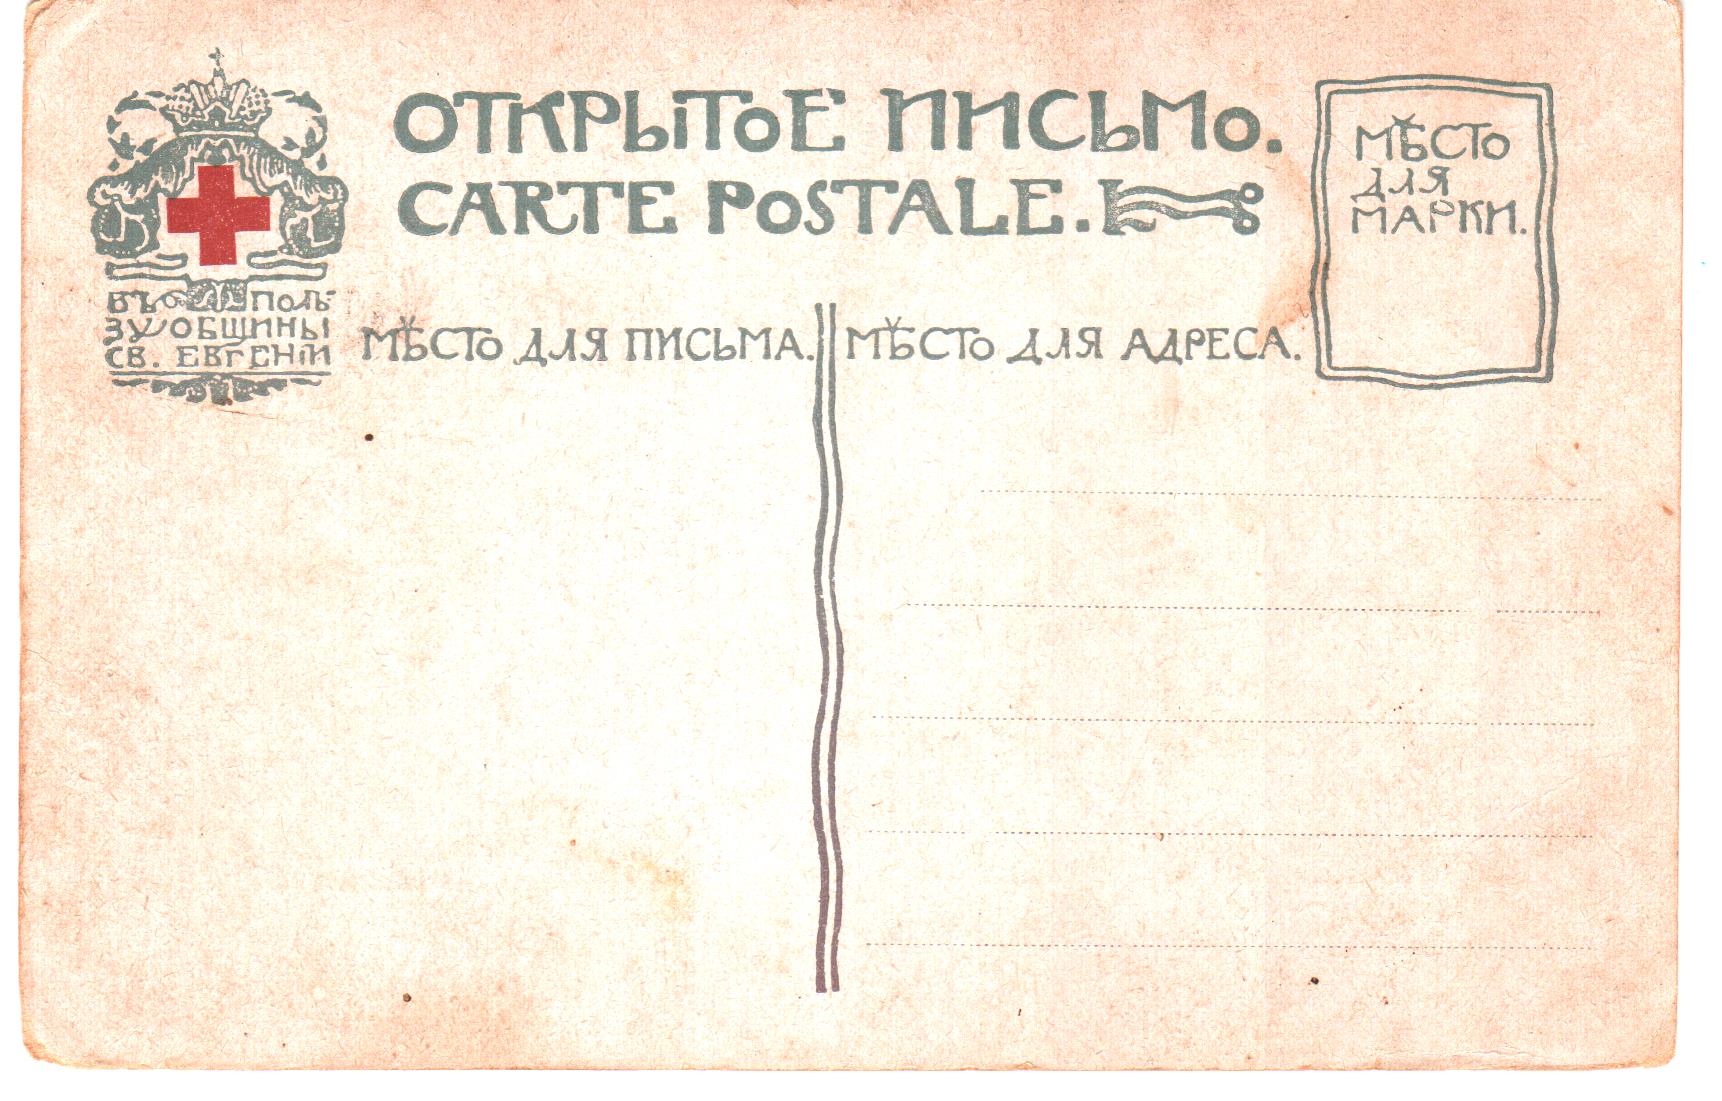 ОТКРЫТОЕ ПИСЬМО.
CARTE POSTALE.
МѢСТО
ДЛЯ
МАРКИ.
ВЪ ПОЛЬ-
ЗУ ОБЩИНЫ
СВ. ЕВГЕНІИ
МѢСТО ДЛЯ ПИСЬМА.
МѢСТО ДЛЯ АДРЕСА.